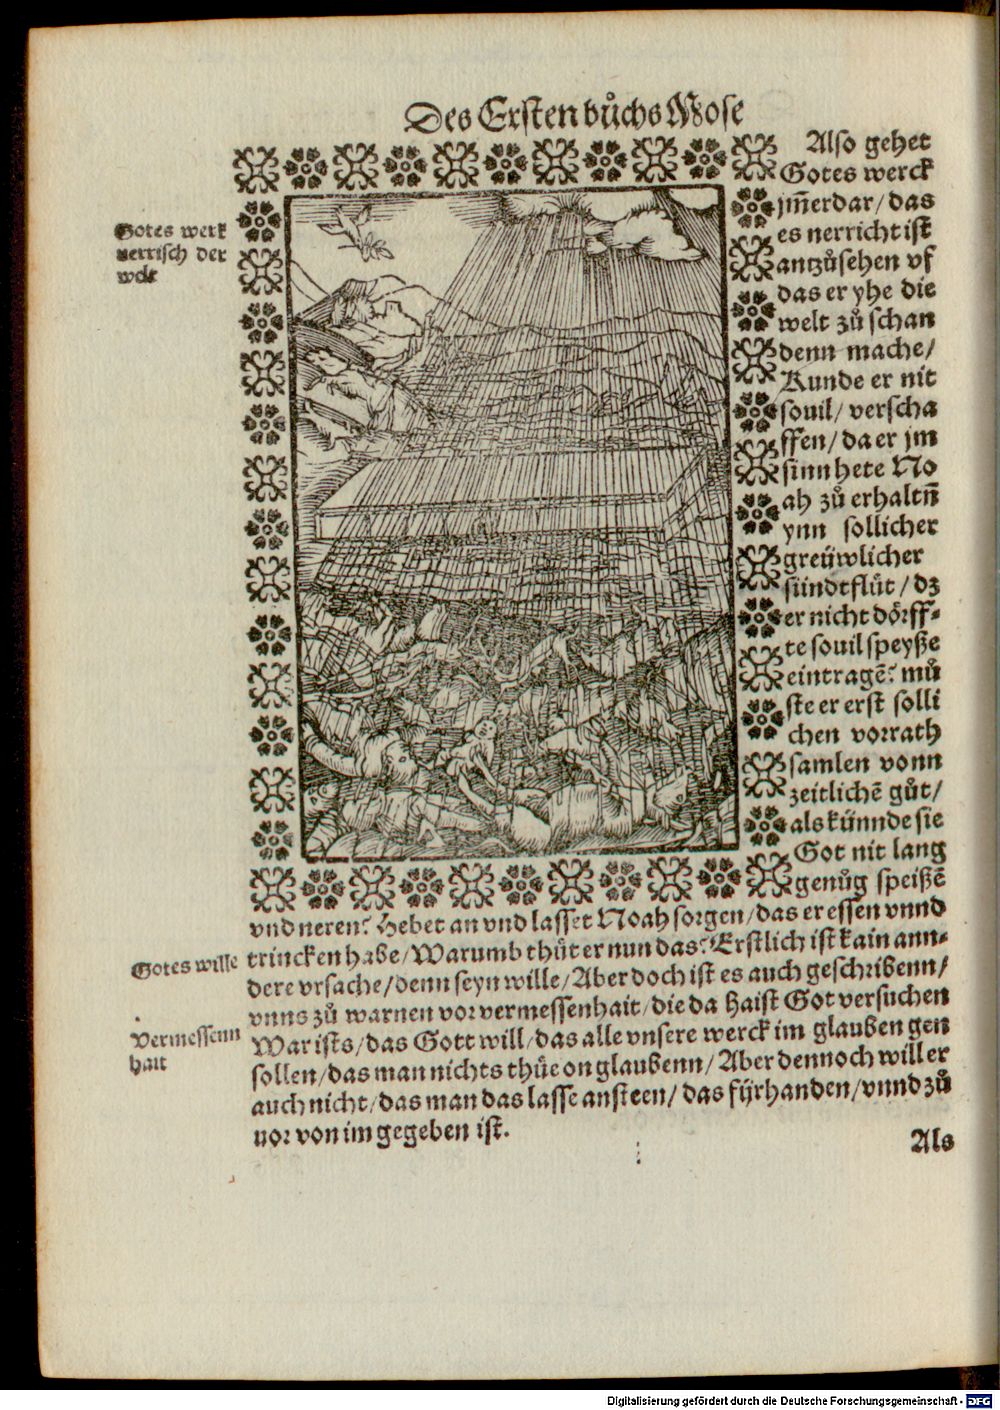 Des Ersten bůchs Mose
Gotes werk
nerrisch der
welt
Also gehet
Gotes werck
jm̃erdar/das
es nerricht ist
antzůsehen vf
das er yhe die
welt zů schan
denn mache/
Kunde er nit
souil/verscha
ffen/da er jm
sinn hete No
ah zů erhaltñ
ynn sollicher
greüwlicher
sündtflůt/dz
er nicht dörff-
te souil speyße
eintragẽ? mů
ste er erst solli
chen vorrath
samlen vonn
zeitlichẽ gůt/
als künnde sie
Got nit lang
genůg speißẽ
vnd neren? Hebet an vnd lasset Noah sorgen/das er essen vnnd
Gotes wille
trincken habe/Warumb thůt er nun das? Erstlich ist kain ann-
dere vrsache/denn seyn wille/Aber doch ist es auch geschribenn/
vnns zů warnen vor vermessenhait/die da haist Got versuchen
Vermessenn
hait
War ists/das Gott will/das alle vnsere werck im glauben gen
sollen/das man nichts thüe on glaubenn/Aber dennoch will er
auch nicht/das man das lasse ansteen/das fürhanden/vnnd zů
uor von im gegeben ist.
Als
Digitalisierung gefördert durch die Deutsche Forschungsgemeinschaft - DFG